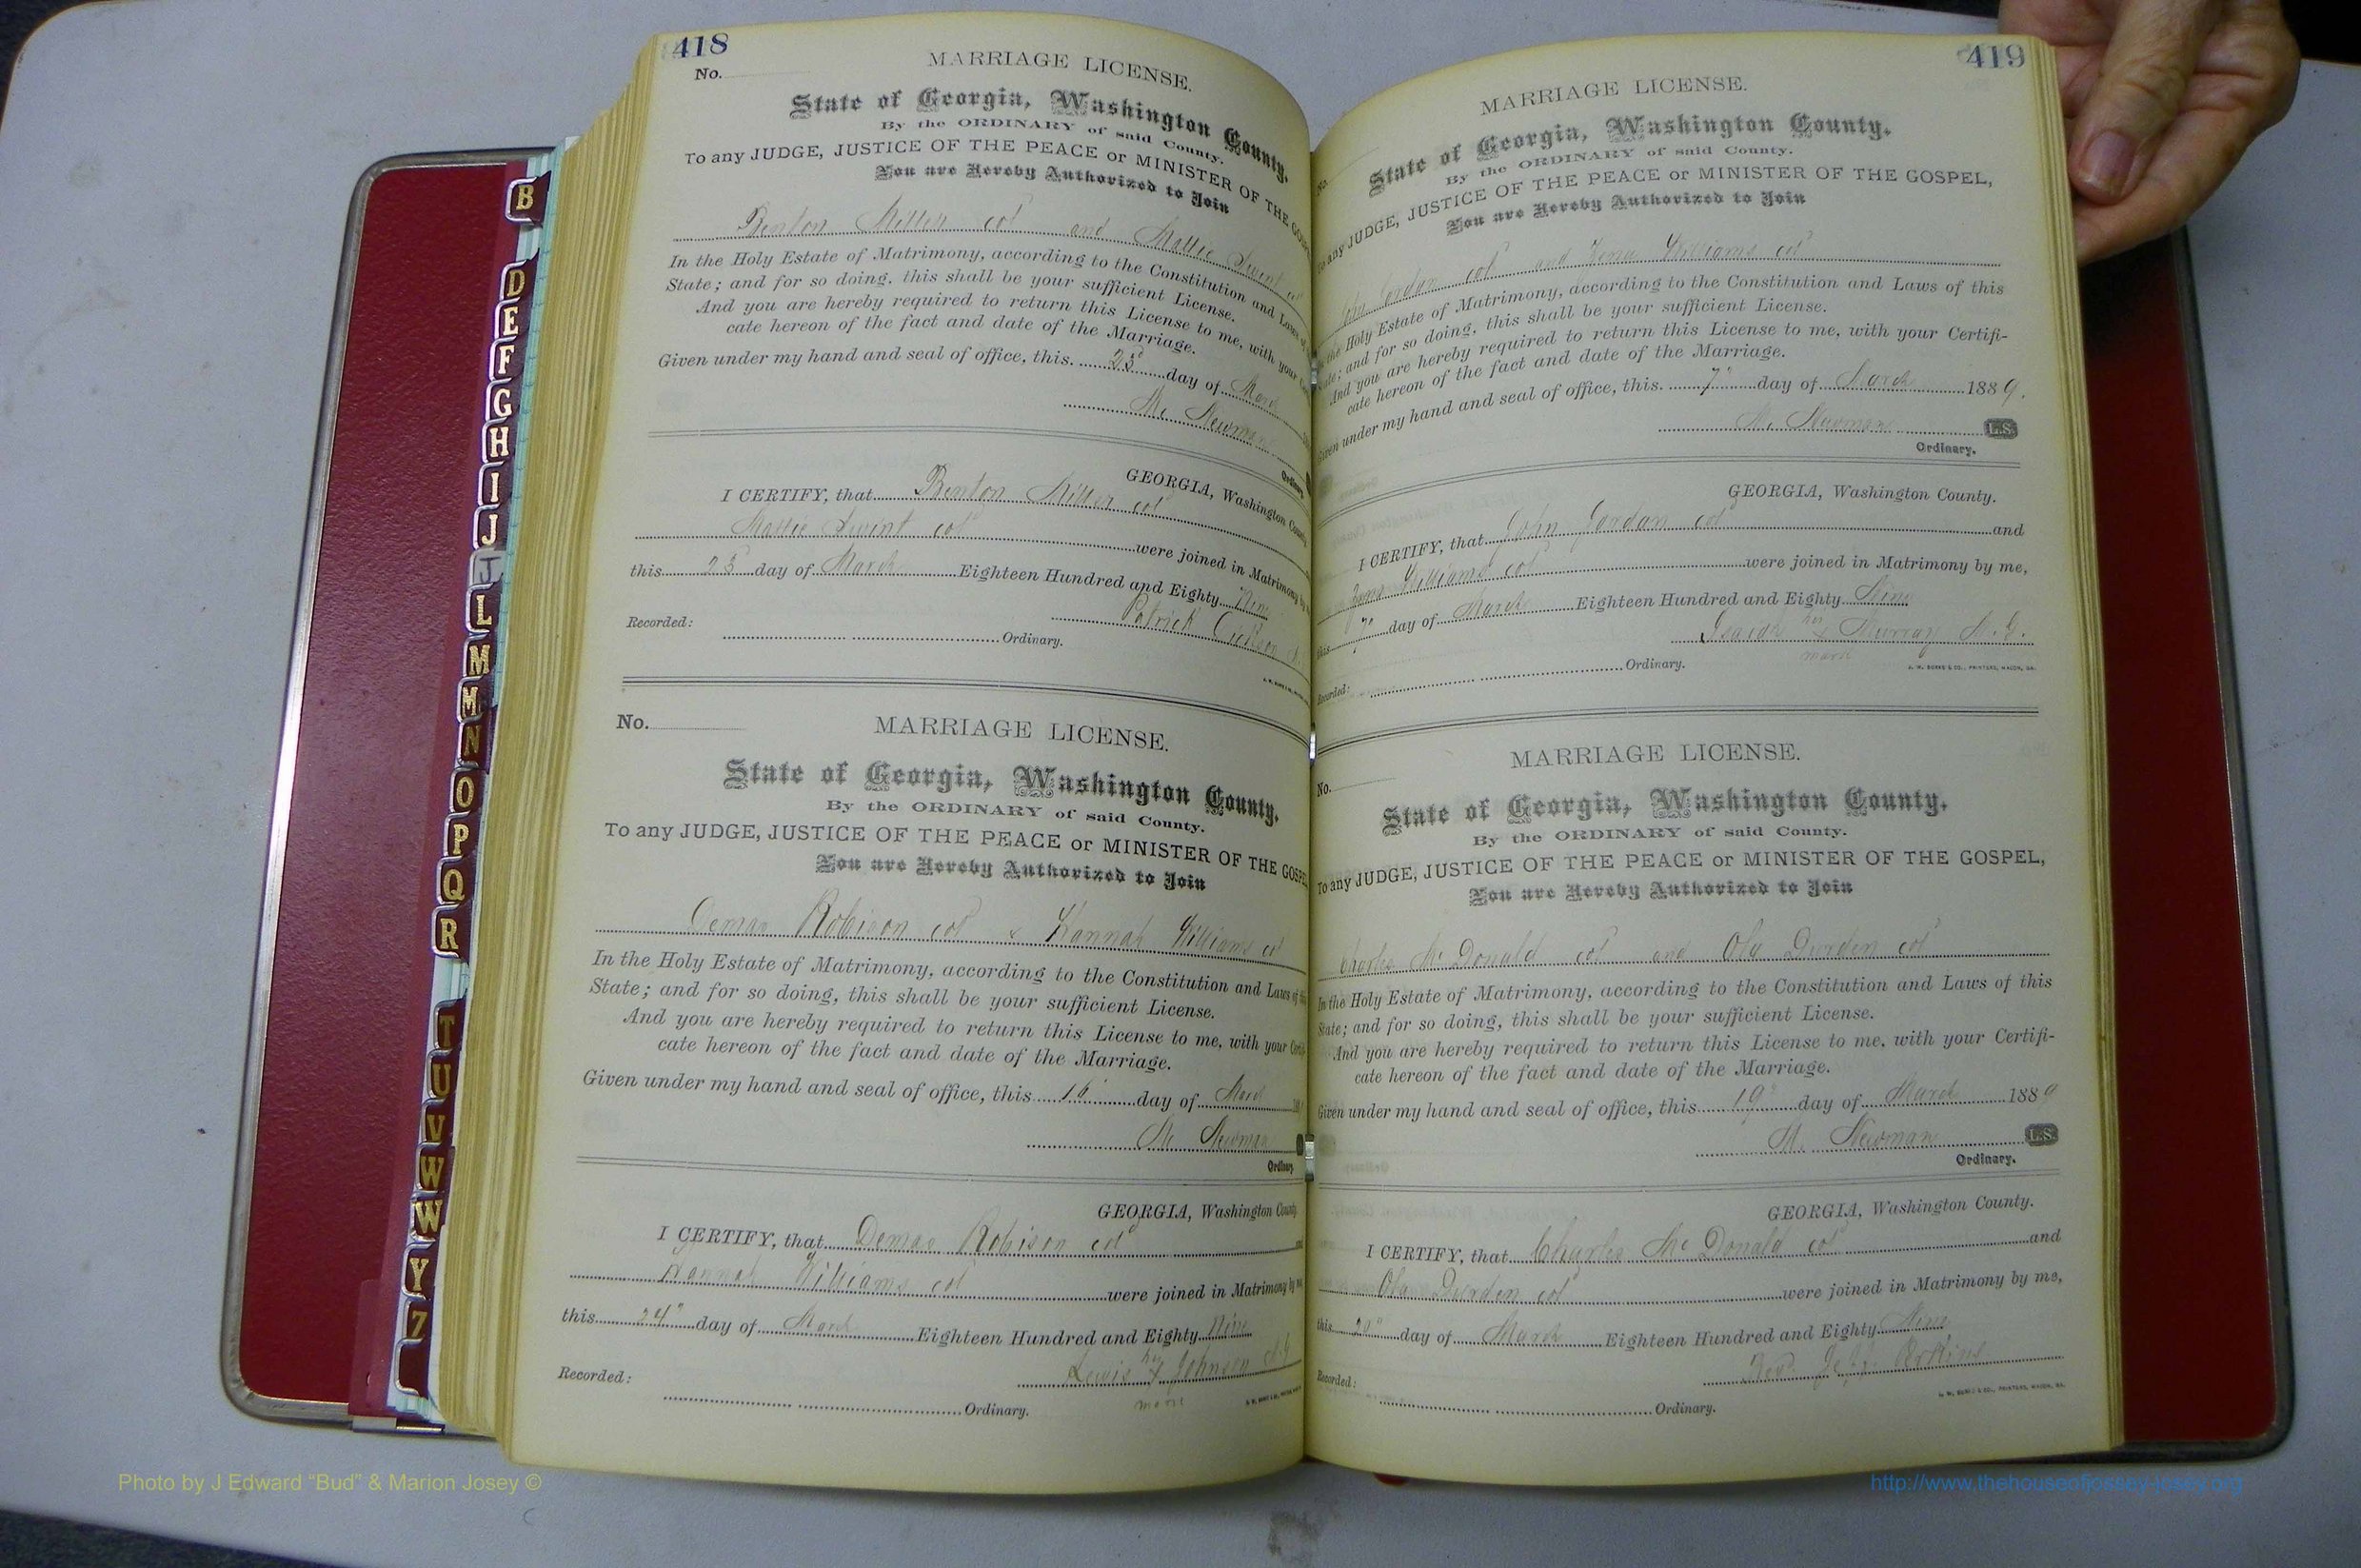 418
No.
MARRIAGE LICENSE.
State of Georgia, Washington County.
By the ORDINARY of said County.
To any JUDGE, JUSTICE OF THE PEACE or MINISTER OF THE GOS
You are Hereby Authorized to Join
Benton Miller col and Mattie Swint col
In the Holy Estate of Matrimony, according to the Constitution and Laws of
State; and for so doing, this shall be your sufficient License.
And you are hereby required to return this License to me, with your
cate hereon of the fact and date of the Marriage.
Given under my hand and seal of office, this 23 day of March
M. Newman
Ordinary.
GEORGIA, Washington County
I CERTIFY, that Benton Miller col
Mattie Swint col were joined in Matrimony by
this 23 day of March Eighteen Hundred and Eighty Nine
Patrick
Recorded: Ordinary.
No.
MARRIAGE LICENSE.
State of Georgia, Washington County.
By the ORDINARY of said County.
To any JUDGE, JUSTICE OF THE PEACE or MINISTER OF THE GOSPEL
You are Hereby Authorized to Join
Demas Robison col & Hannah Williams col
In the Holy Estate of Matrimony, according to the Constitution and Laws of
State; and for so doing, this shall be your sufficient License.
And you are hereby required to return this License to me, with your Certifi
cate hereon of the fact and date of the Marriage.
Given under my hand and seal of office, this 16 day of March
M. Newman
Ordinary.
GEORGIA, Washington County
I CERTIFY, that Demas Robison col
Hannah Williams col were joined in Matrimony by me
this 24" day of March Eighteen Hundred and Eighty Nine
Lewis his x Johnson
mark
Recorded: Ordinary.
419
No.
MARRIAGE LICENSE.
State of Georgia, Washington County.
By the ORDINARY of said County.
To any JUDGE, JUSTICE OF THE PEACE or MINISTER OF THE GOSPEL,
You are Hereby Authorized to Join
John Jordan col and Williams col
In the Holy Estate of Matrimony, according to the Constitution and Laws of this
State; and for so doing, this shall be your sufficient License.
And you are hereby required to return this License to me, with your Certifi-
cate hereon of the fact and date of the Marriage.
Given under my hand and seal of office, this 7" day of March 1889.
M. Newman L.S.
Ordinary.
GEORGIA, Washington County.
I CERTIFY, that John Jordan col and
Williams col were joined in Matrimony by me,
this 7" day of March Eighteen Hundred and Eighty Nine
Isaiah his x Murray M.G.
mark
J. W. BURKE & CO., PRINTERS, MACON, GA.
Recorded: Ordinary.
No.
MARRIAGE LICENSE.
State of Georgia, Washington County.
By the ORDINARY of said County.
To any JUDGE, JUSTICE OF THE PEACE or MINISTER OF THE GOSPEL,
You are Hereby Authorized to Join
Charles McDonald col and Ola Durden col
In the Holy Estate of Matrimony, according to the Constitution and Laws of this
State; and for so doing, this shall be your sufficient License.
And you are hereby required to return this License to me, with your Certifi-
cate hereon of the fact and date of the Marriage.
Given under my hand and seal of office, this 19 day of March 1889
M. Newman L.S.
Ordinary.
GEORGIA, Washington County.
I CERTIFY, that Charles McDonald col and
Ola Durden col were joined in Matrimony by me,
this 20" day of March Eighteen Hundred and Eighty Nine
Rev. Perkins
J. W. BURKE & CO., PRINTERS, MACON, GA.
Recorded: Ordinary.
B
D
E
F
G
H
I
J
J
L
M
M
N
O
P
Q
R
T
U
V
W
W
Y
Z
Photo by J Edward “Bud” & Marion Josey ©
http://www.thehouseofjossey-josey.org